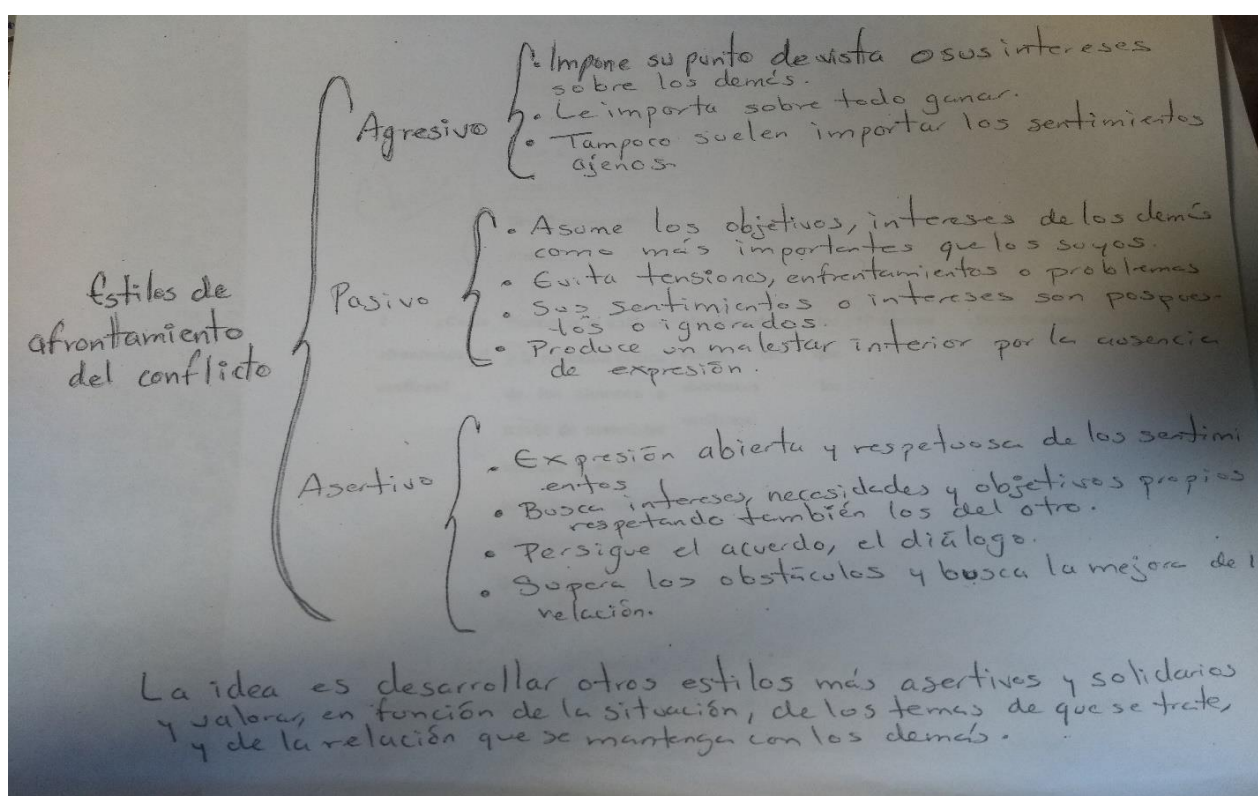 Estilos de
afrontamiento
del conflicto
Agresivo
• Impone su punto de vista o sus intereses
sobre los demás.
• Le importa sobre todo ganar.
• Tampoco suelen importar los sentimientos
ajenos.
Pasivo
• Asume los objetivos, intereses de los demás
como más importantes que los suyos.
• Evita tensiones, enfrentamientos o problemas
• Sus sentimientos o intereses son pospues-
tos o ignorados.
• Produce un malestar interior por la ausencia
de expresión.
Asertivo
• Expresión abierta y respetuosa de los sentimi
entos
• Busca intereses, necesidades y objetivos propios
respetando también los del otro.
• Persigue el acuerdo, el diálogo.
• Supera los obstáculos y busca la mejora de l
relación.
La idea es desarrollar otros estilos más asertivos y solidarios
y valorar, en función de la situación, de los temas de que se trate,
y de la relación que se mantenga con los demás.